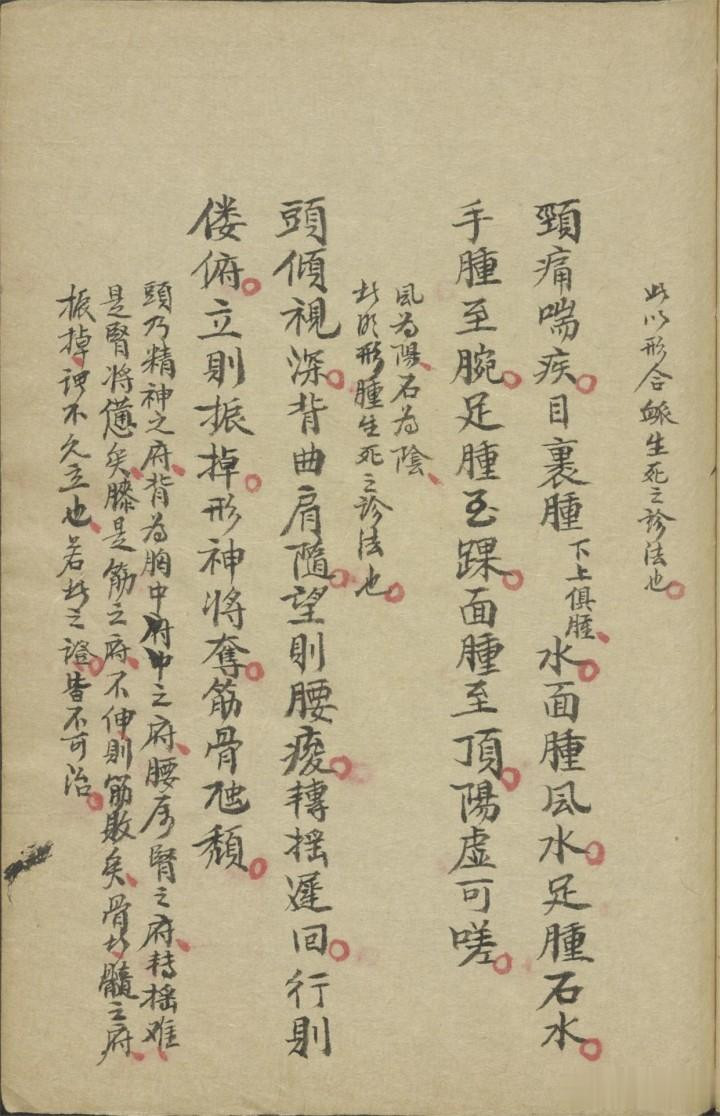 此以形合䘑生死之診法也。
頸痛喘疾。目裹腫下上俱腫、水。面腫風水。足腫石水。
手腫至腕。足腫至踝。面腫至頂。陽虛可嗟。
風為陽、石為陰、
此明形腫生死之診法也。
頭傾視深。背曲肩隨。望則腰痠。轉搖遲回。行則
僂俯。立則振掉。形神將奪。筋骨虺頹。
頭乃精神之府、背為胸中府中之府、腰為腎之府、轉搖难、
是腎將憊矣、膝是筋之府、不伸則筋敗矣、骨此髓之府、
振掉、谉不久立也、若此之證、皆不可治。